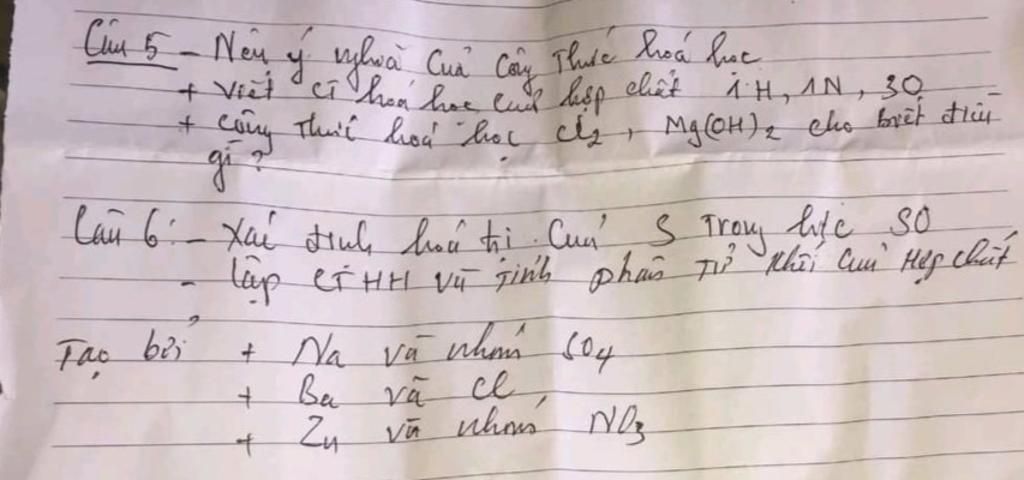 Câu 5 - Nêu ý nghĩa của công thức hoá học
+ Viết CT hoá học của hợp chất 1H, 1N, 3O
+ Công thức hoá học Cl2, Mg(OH)2 cho biết điều
gì?
Câu 6: - Xác định hoá trị của S trong h/c SO
- Lập CTHH và tính phân tử khối của Hợp chất
Tạo bởi + Na và nhóm SO4
+ Ba và Cl
+ Zn và nhóm NO3